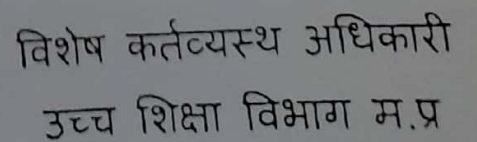 विशेष कर्तव्यस्थ अधिकारी
उच्च शिक्षा विभाग म.प्र